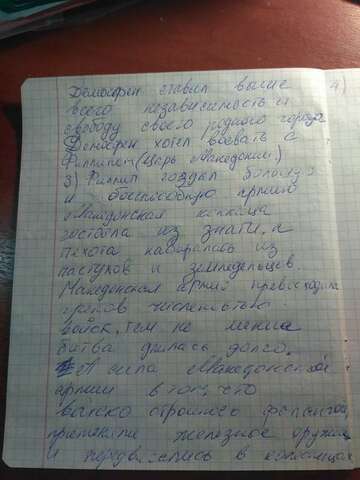 Демосфен ставил выше
всего независимость и
свободу своего родного города
Демосфен хотел воевать с
Филлипом (Царь Македонии.)
3) Филип создал большую
и боеспособную армию
Македонская конница
состояла из знати, а
пехота набиралась из
пастухов и земледельцев.
Македонская армия превысходила
греков численностью
войск, тем не менее
битва длилась долго.
А сила Македонской
армии в том, что
войско строилось фалангой,
применяли железное оружие
и передвигались в колоннах
4)